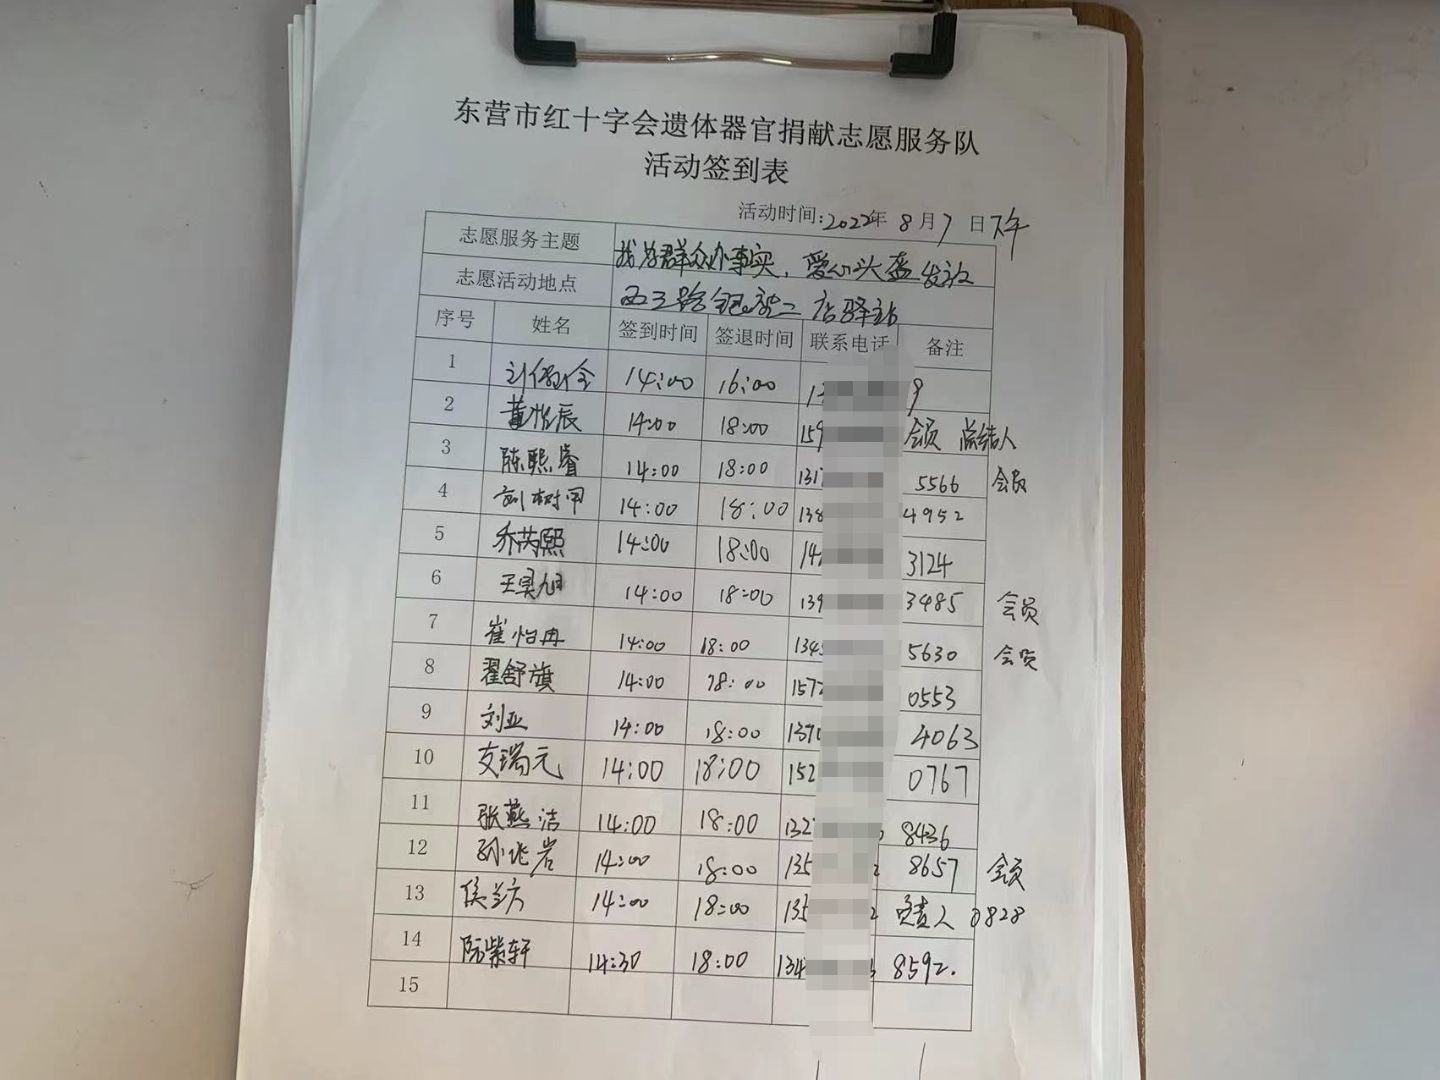 东营市红十字会遗体器官捐献志愿服务队
活动签到表
活动时间:2022年 8月7日下午
志愿服务主题 我为群众办事实，爱心头盔发放
志愿活动地点 西三路 二店驿站
序号 姓名 签到时间 签退时间 联系电话 备注
1 14:00 16:00 9
2 董怡辰 14:00 18:00 159 会员 总结人
3 陈熙睿 14:00 18:00 1317 5566 会员
4 刘树甲 14:00 18:00 138 4952
5 乔芮熙 14:00 18:00 14 3124
6 王昊旭 14:00 18:00 139 3485 会员
7 崔怡冉 14:00 18:00 134 5630 会员
8 翟舒旗 14:00 18:00 157 0553
9 刘亚 14:00 18:00 1390 4063
10 支瑞元 14:00 18:00 152 0767
11 张燕洁 14:00 18:00 132 8436
12 孙兆岩 14:00 18:00 135 8657 会员
13 侯兰方 14:00 18:00 135 2 负责人 0828
14 陈紫轩 14:30 18:00 134 8592.
15